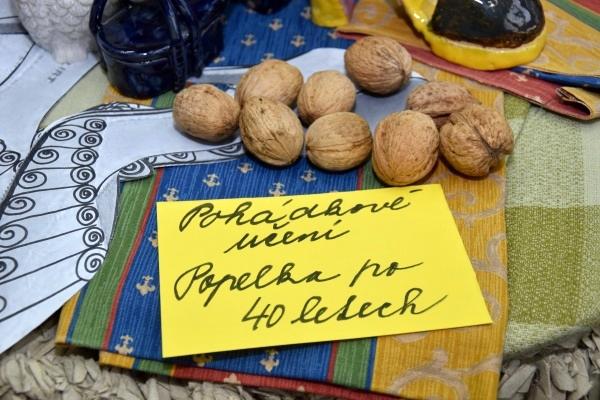 Pohádkové
učení
Popelka po
40 letech